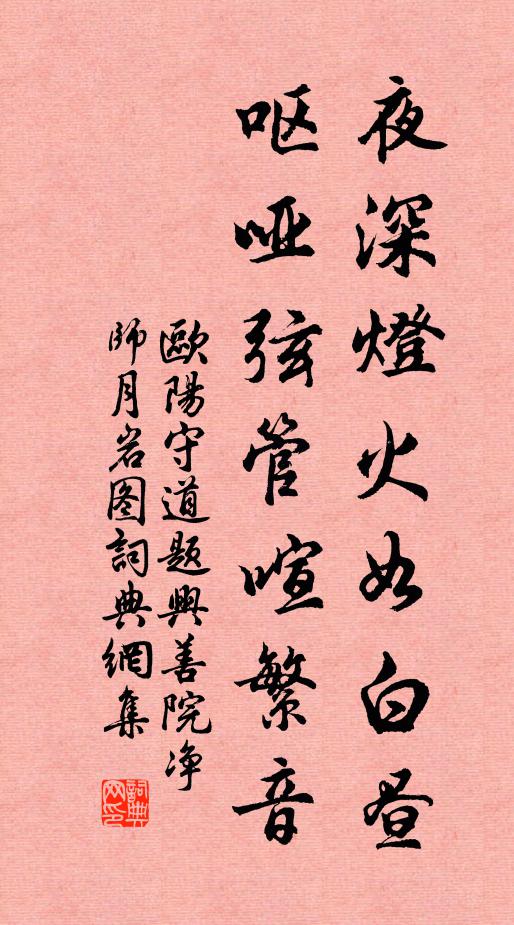 夜深燈火如白昼
呕哑弦管喧繁音
歐陽守道題興善院净
師月岩图詞典網集
詞典网印